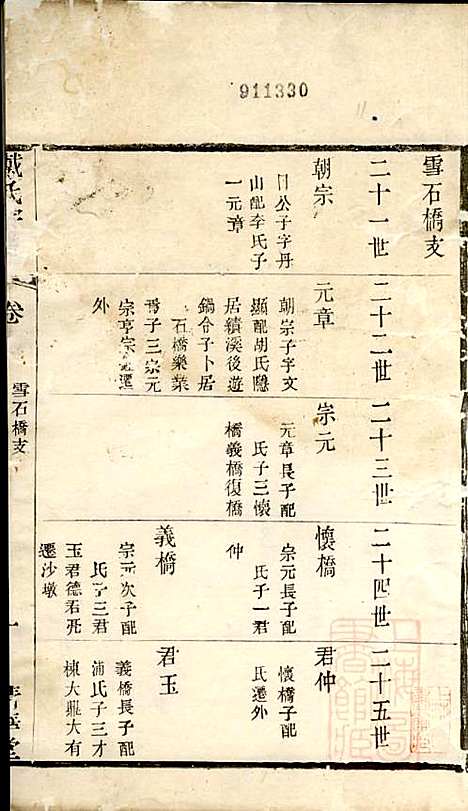 911330
雪石橋支
二十一世
朝宗
公子字丹
山配李氏子
一元章
二十二世
元章
朝宗子字文
顯配胡氏隱
居績溪後遊
鍋令子卜居
石橋樂業
子三宗元
宗亨宗 遷
外
二十三世
宗元
元章長子配
氏子三懷
橋義橋復橋
二十四世
懷橋
宗元長子配
氏子一君
仲
義橋
宗元次子配
氏子三君
玉君德君亮
遷沙墩
二十五世
君仲
懷橋子配
氏遷外
君玉
義橋長子配
浦氏子三才
棟大鼎大有
戴氏
卷
雪石橋支
一
堂